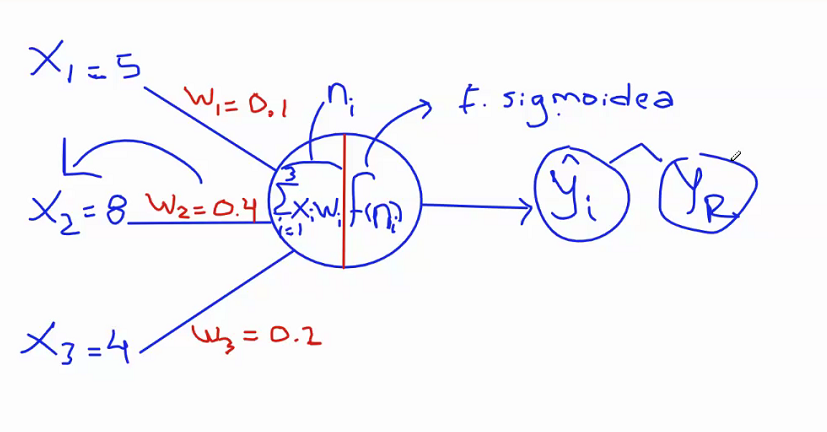 X₁ = 5
W₁ = 0.1
nᵢ
f. sigmoidea
X₂ = 8
W₂ = 0.4
3
Σ xᵢwᵢ
i=1
f(nᵢ)
ŷᵢ
y_R
X₃ = 4
W₃ = 0.2